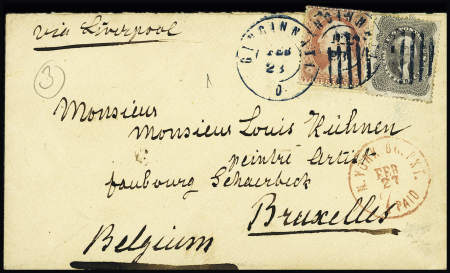 via Liverpool
CINCINNATI
FEB
23
O.
3
Monsieur
Monsieur Louis Kühnen
peintre Artist
faubourg Schaerbeck
Bruxelles
Belgium
N. YORK BR. PKT.
FEB
27
PAID